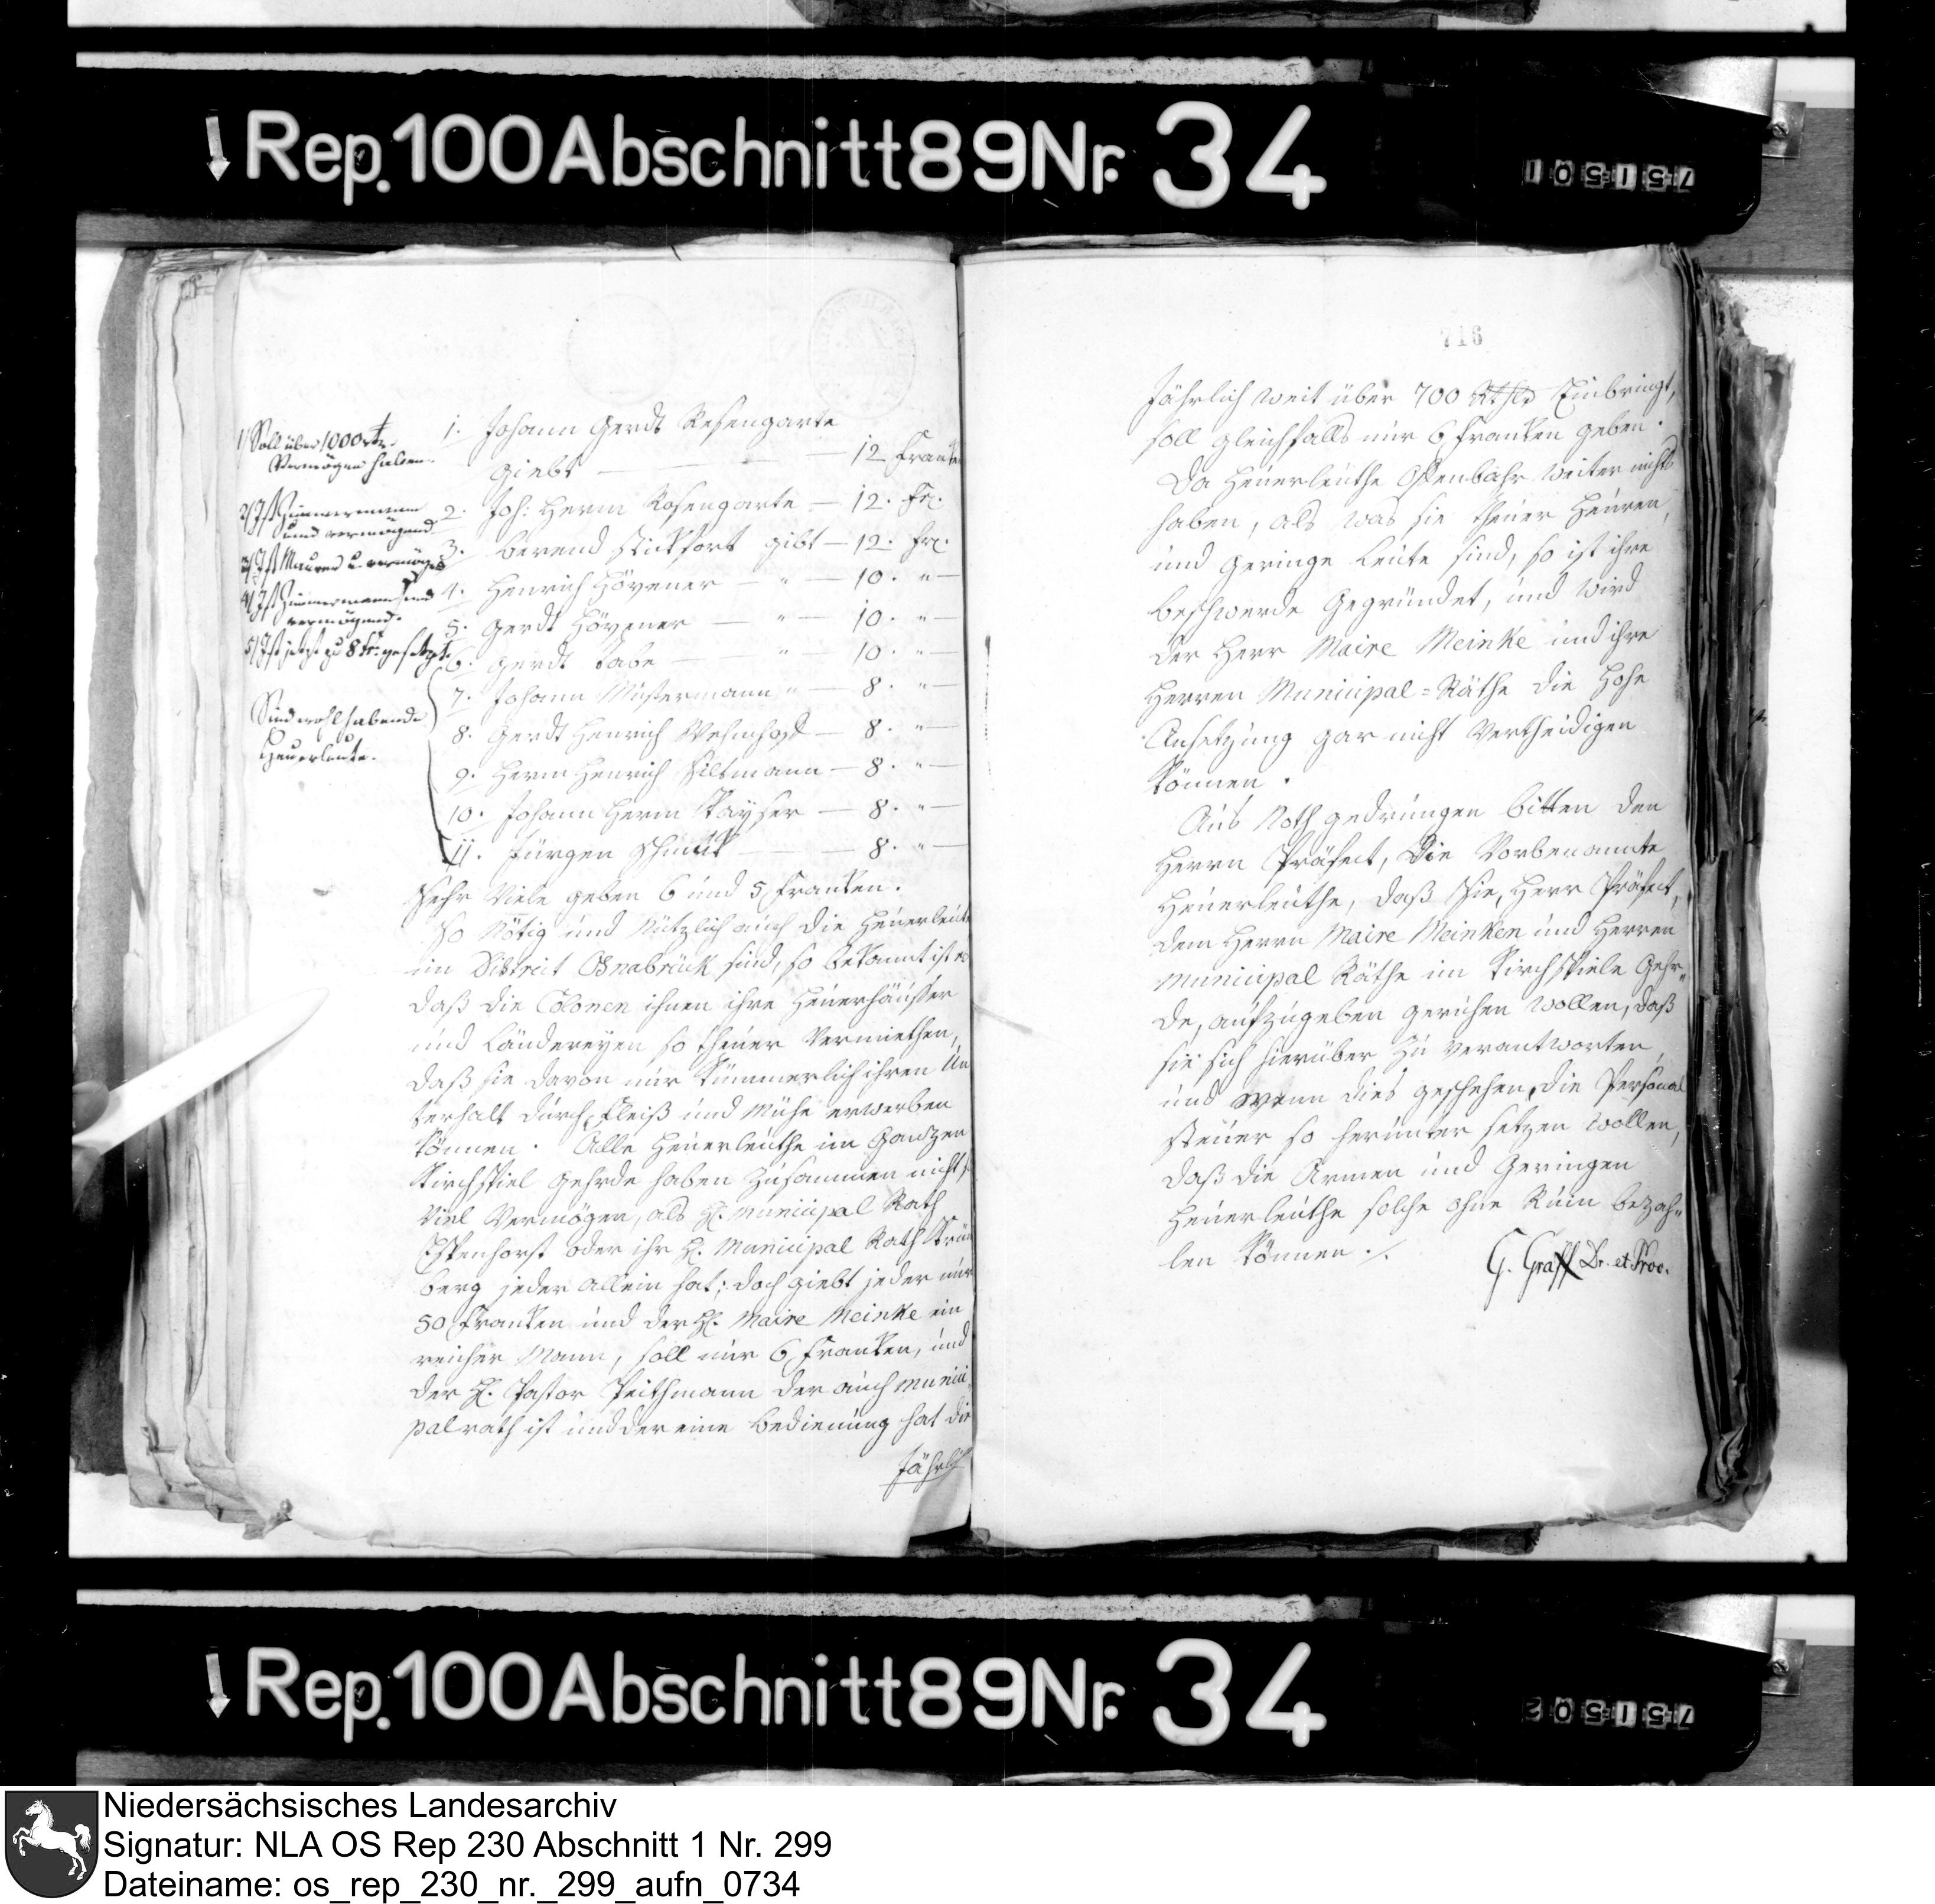 Rep. 100 Abschnitt 89 Nr. 34
751501
1/ Soll über 1000 rtr.
Vermögen haben.
2/ Ist Zimmermann
und vermögend
3/ Ist Maurer u. vermög
4/ Ist Zimmermann und
vermögend.
5/ Ist jetzt zu 8 fr. gesetzt.
Sind wohlhabende
Heuerleute.
1. Johann Gerdt Rosengarte
giebt — 12 Franken
2. Joh: Herm Rosengarte — 12. Fr.
3. Berend Stickfort gibt — 12. Fr.
4. Henrich Hövener — " — 10. " —
5. Gerdt Hövener — " — 10. " —
6. Gerdt Tabe — " — 10. " —
7. Johann Müstermann " — 8. " —
8. Gerdt Henrich — 8. " —
9. Herm Henrich Siltmann — 8. " —
10. Johann Herm Kayser — 8. " —
11. Jürgen Schmidt — 8. " —
Sehr Viele geben 6 und 5 Franken.
So Nötig und Nützlich auch die Heuerleute
im District Osnabrück sind, so bekannt ist es
daß die Colonen ihnen ihre Heuerhäußer
und Ländereyen so theuer Vermiethen,
daß sie davon nur kümmerlich ihren Un
terhalt durch Fleiß und Mühe erwerben
können. Alle Heuerleuthe im Gantzen
Kirchspiel Gehrde haben Zusammen nicht so
Viel Vermögen, als H. Municipal Rath
Espenhorst oder ihr H. Municipal Rath
berg jeder allein hat; doch giebt jeder nur
50 Franken und der H. Maire Meinke ein
reicher Mann, soll nur 6 Franken, und
der H. Pastor Peithmann der auch Munici
palrath ist und der eine Bedienung hat die
Jährlich
716
Jährlich weit über 700 Rthlr Einbringt,
soll gleichfalls nur 6 Franken geben.
Da Heuerleuthe Offenbahr Weiter nichts
haben, als was sie theuer Heuren,
und geringe Leute sind, so ist ihre
beschwerde Gegründet, und wird
der Herr Maire Meinke und ihre
Herren Municipal=Räthe die hohe
Ansetzung gar nicht Vertheidigen
können.
Aus Noth gedrungen bitten den
Herrn Präfect, die Vorbenannte
Heuerleuthe, daß Sie, Herr Präfect,
dem Herrn Maire Meinken und Herren
Municipal Räthe im Kirchspiele Gehr„
de, aufzugeben geruhen wollen, daß
sie sich hierüber Zu Verantworten,
und wenn dies geschehen, die Personal
steuer so herunter setzen wollen,
daß die Armen und Geringen
Heuerleuthe solche ohne Ruin bezah„
len können ./.
G. Graff Dr. et Proc.
Rep. 100 Abschnitt 89 Nr. 34
751502
Niedersächsisches Landesarchiv
Signatur: NLA OS Rep 230 Abschnitt 1 Nr. 299
Dateiname: os_rep_230_nr._299_aufn_0734